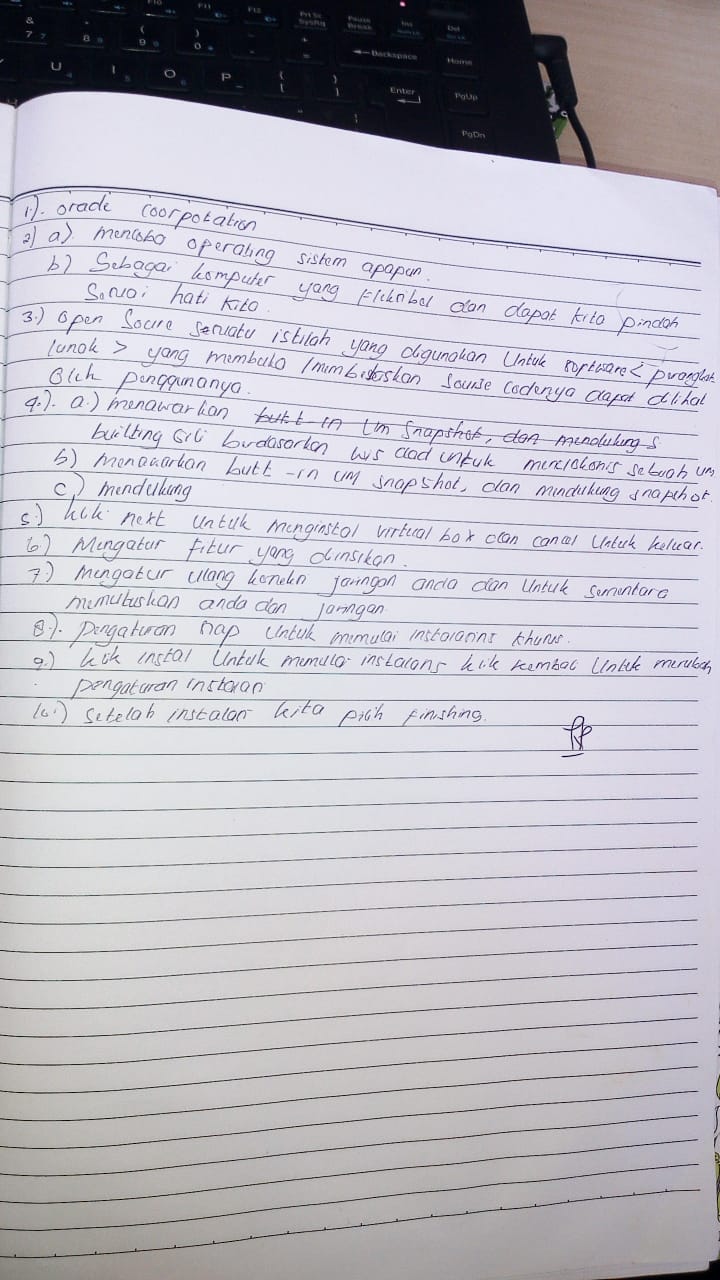 F10 F11 F12 Prt Sc SysRq Pause Break Ins Del
& 7 7 8 8 ( 9 9 ) 0 - + = Backspace Home
U 4 I 5 O 6 P { [ } ] Enter PgUp
PgDn
1.). oracle Coorpotation
2) a) mencoba operating sistem apapun.
b) Sebagai komputer yang Fleksibel dan dapat kita pindah
Sesuai hati kita.
3.) Open Soure seruatu istilah yang digunakan Untuk software < prangkat
lunak > yang membuka / membebaskan Sourse Codenya dapat dilihat
Oleh penggunanya.
4.). a.) menawarkan butt-in Um Snapshot, dan mendukung S
builting Gili berdasarkan untuk sebuah um
b) menawarkan butt-in UM snapshot, dan mindukung snapshot.
c.) mendukung
5.) klik next Untuk menginstal virtual box dan cancel Untuk keluar.
6) Mengatur fitur yang diinsikan.
7) mengatur ulang koneksi jaringan anda dan Untuk sementara
memutuskan anda dan jaringan
8.). pengaturan siap Untuk memulai khusus.
9.) klik instal Untuk memulai instalans klik kembali Untuk merubah
pengaturan instalan
10.) Setelah instalan kita pilih finishing.